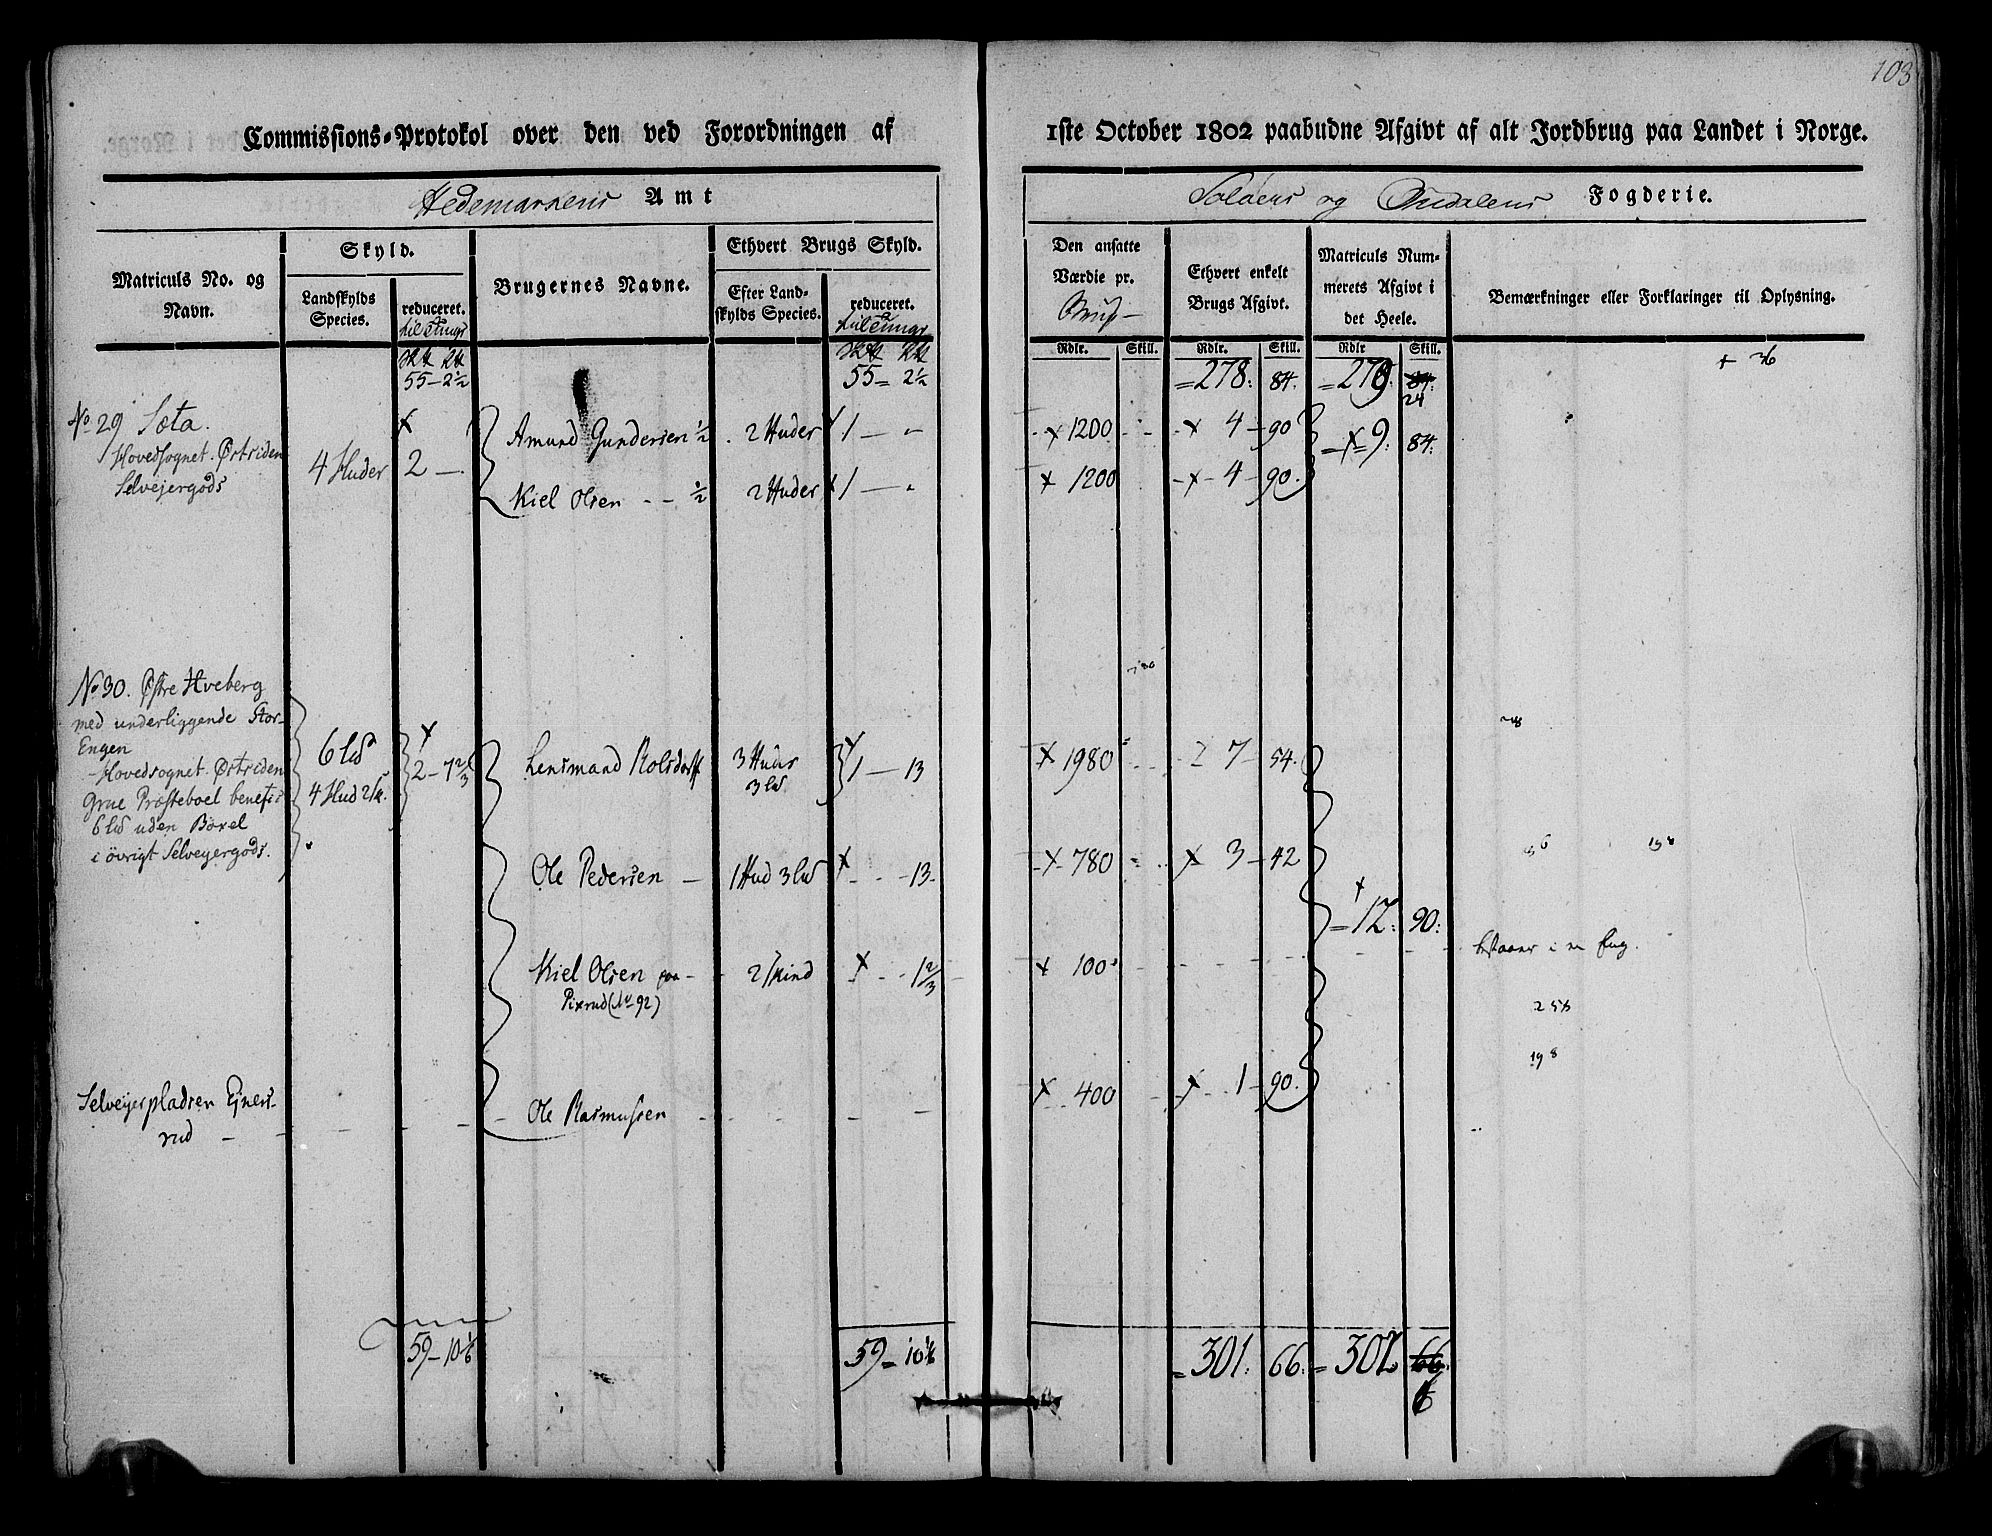 103
Commissions-Protokol over den ved Forordningen af
1ste October 1802 paabudne Afgivt af alt Jordbrug paa Landet i Norge.
Hedemarkens Amt
Soløens og Oudalens Fogderie.
Matriculs No. og
Navn.
Skyld.
Landskylds
Species.
reduceret.
til Tunge
Brugernes Navne.
Ethvert Brugs Skyld.
Efter Land-
skylds Species.
reduceret.
til Tunge
Den ansatte
Værdie pr.
Brug
Rdlr. Skill.
Ethvert enkelt
Brugs Afgivt.
Rdlr. Skill.
Matriculs Num-
merets Afgivt i
det Heele.
Rdlr Skill.
Bemærkninger eller Forklaringer til Oplysning.
55 - 2½ 55 = 2½ = 278: 84. = 279. 84:
24
+ 36
No 29 Sæta.
Hovedsognet. Østsiden
Selvejergods
4 Huder 2 -
Amund Gundersen ½ 2 Huder x 1 - x 1200 x 4 - 90
Kiel Olsen - - ½ 2 Huder x 1 - x 1200 - x - 4 - 90.
= x 9: 84:
No 30. Østre Hveberg
med underliggende Stor-
Engen
- Hovedsognet. Østsiden
Grue Præsteboel benefic
6 lb uden Bøxel
i øvrigt Selveyergods.
6 lb
4 Hud 2 sk.
x
2 - 7⅔
Lensmand Rolsdorff 3 Huds
3 lb.
x 1 - 13 x 1980 7 - 54.
Ole Pedersen - 1 Hud 3 lb x - - 13. - x - 780 x 3 - 42
x
= 12: 90:
Kiel Olsen paa - 2 skind x - - 1⅔ x 100
Pixrud (No 92)
i en Eng.
256
19 8
Selveyerpladsen Ejners-
rud -
Ole Rasmussen x 400 x 1 - 90.
59 - 10⅙ 59 = 10⅙ = 301: 66: = 302. 66:
6